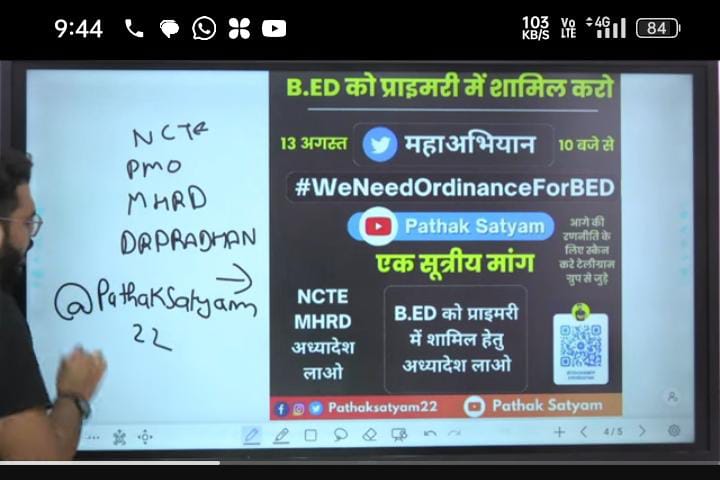 9:44
103
KB/S
Vo
LTE
4G
84
NCTE
PMO
MHRD
DRPRADHAN
@PathakSatyam
22
B.ED को प्राइमरी में शामिल करो
13 अगस्त
महाअभियान
10 बजे से
#WeNeedOrdinanceForBED
Pathak Satyam
एक सूत्रीय मांग
आगे की
रणनीति के
लिए स्कैन
करे टेलीग्राम
ग्रुप से जुड़े
NCTE
MHRD
अध्यादेश
लाओ
B.ED को प्राइमरी
में शामिल हेतु
अध्यादेश लाओ
Pathaksatyam22
Pathak Satyam
4/5